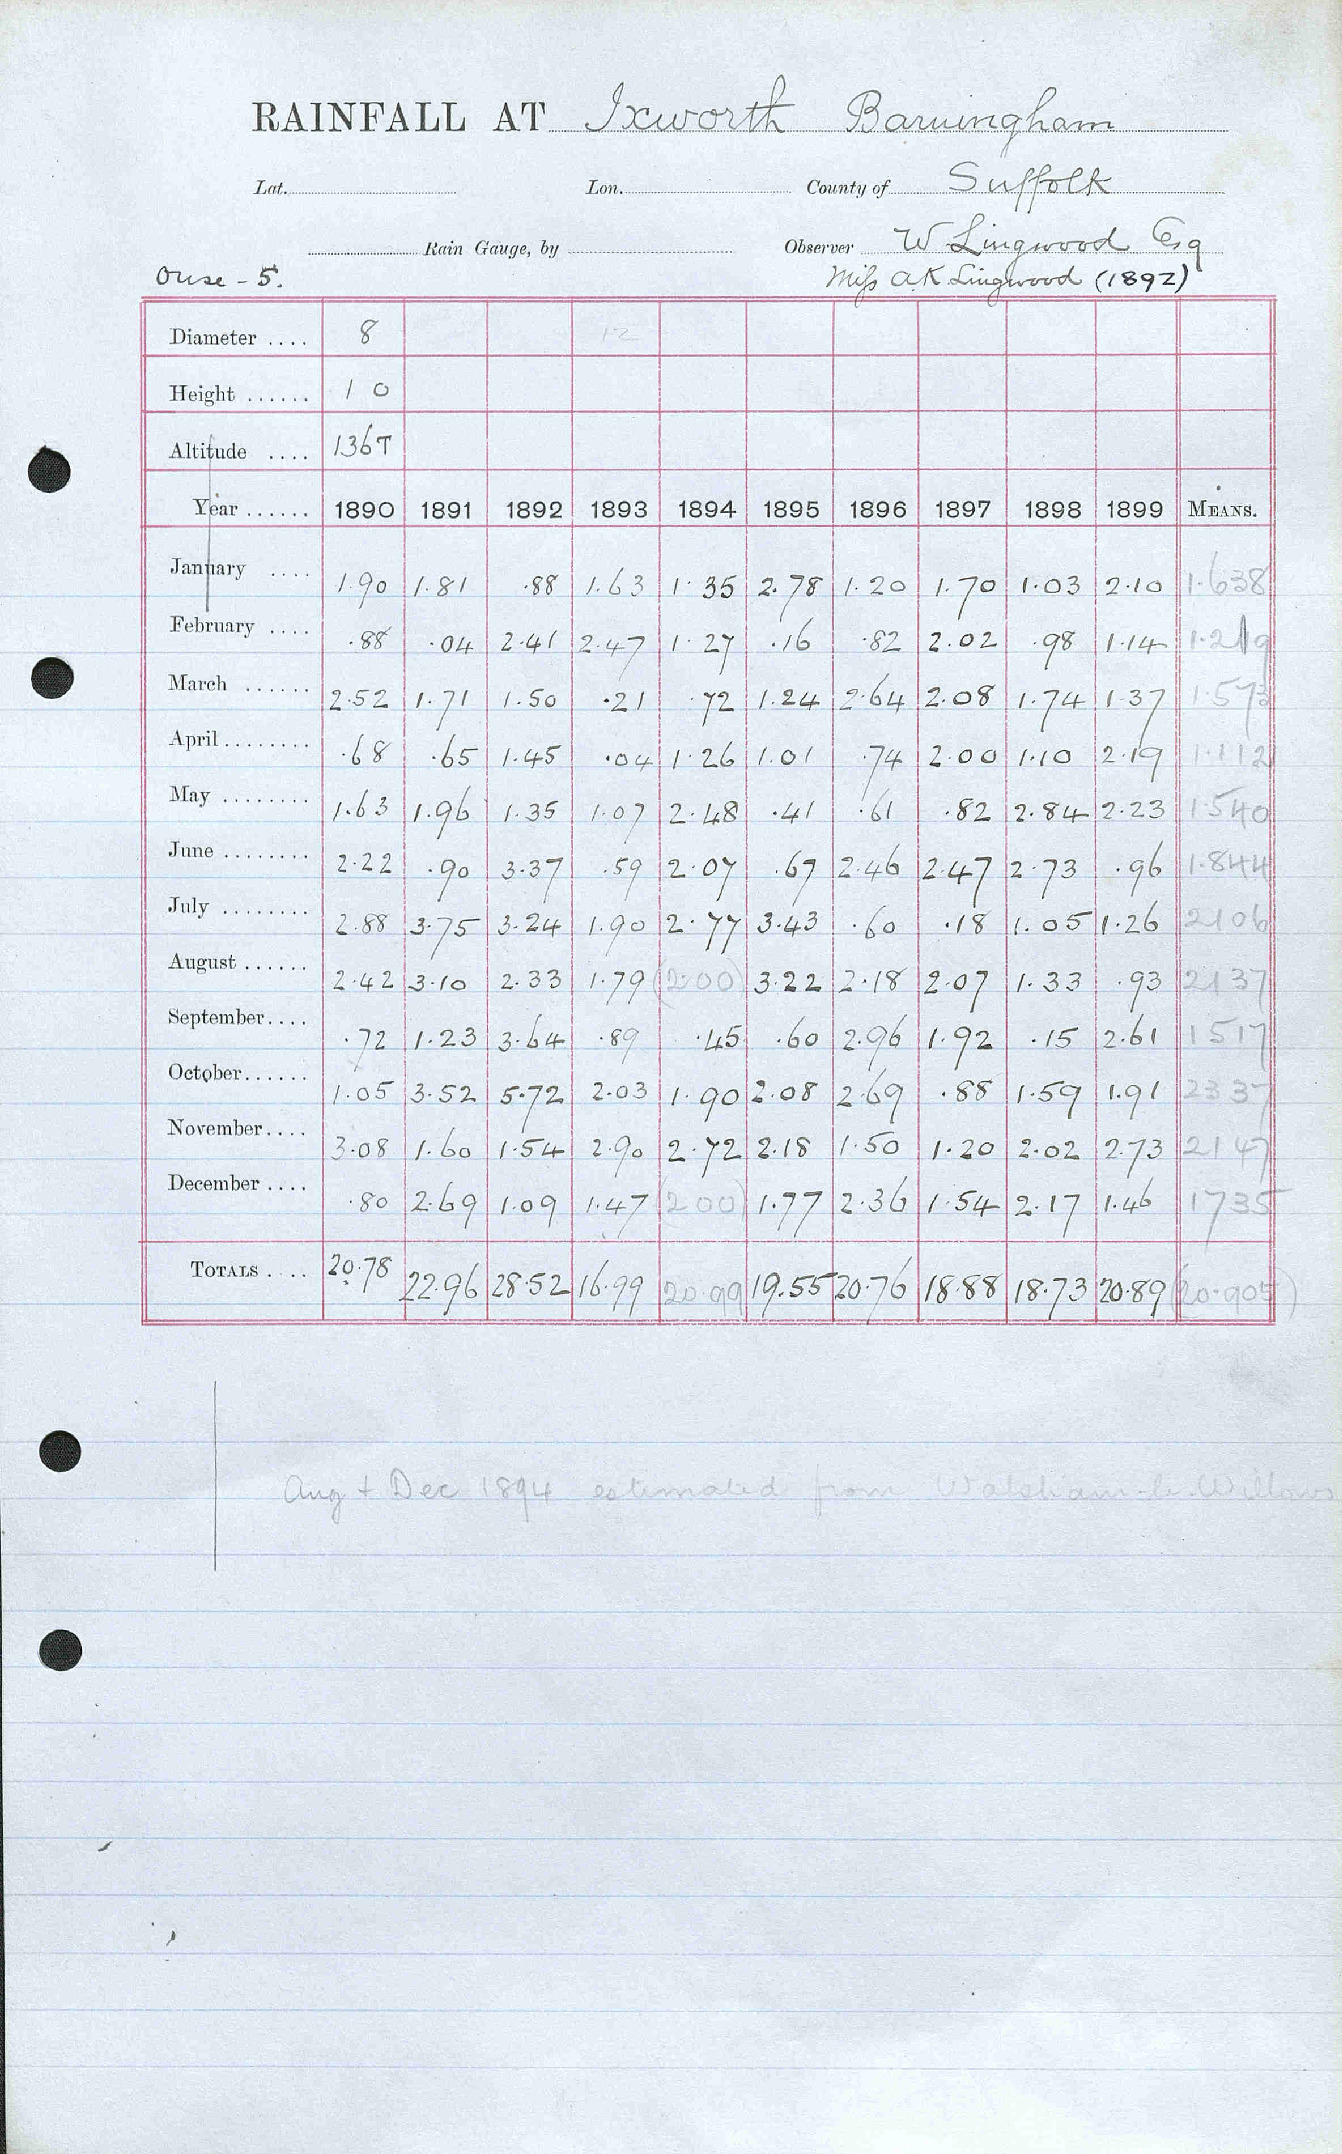 RAINFALL AT Ixworth Barningham
Lat. Lon. County of Suffolk
Rain Gauge, by Observer W Lingwood Esq
Ouse - 5. Miss A K Lingwood (1892)
Diameter .... 8 12
Height ...... 1 0
Altitude .... 136T
Year ...... 1890 1891 1892 1893 1894 1895 1896 1897 1898 1899 MEANS.
January .... 1.90 1.81 .88 1.63 1.35 2.78 1.20 1.70 1.03 2.10 1.638
February .... .88 .04 2.41 2.47 1.27 .16 .82 2.02 .98 1.14 1.219
March ...... 2.52 1.71 1.50 .21 .72 1.24 2.64 2.08 1.74 1.37 1.573
April ........ .68 .65 1.45 .04 1.26 1.01 .74 2.00 1.10 2.19 1.112
May ........ 1.63 1.96 1.35 1.07 2.48 .41 .61 .82 2.84 2.23 1.540
June ........ 2.22 .90 3.37 .59 2.07 .67 2.46 2.47 2.73 .96 1.844
July ........ 2.88 3.75 3.24 1.90 2.77 3.43 .60 .18 1.05 1.26 2106
August ...... 2.42 3.10 2.33 1.79 (2.00) 3.22 2.18 2.07 1.33 .93 2137
September.... .72 1.23 3.64 .89 .45 .60 2.96 1.92 .15 2.61 1517
October...... 1.05 3.52 5.72 2.03 1.90 2.08 2.69 .88 1.59 1.91 2337
November.... 3.08 1.60 1.54 2.90 2.72 2.18 1.50 1.20 2.02 2.73 2147
December .... .80 2.69 1.09 1.47 (200) 1.77 2.36 1.54 2.17 1.46 1735
TOTALS .... 20.78 22.96 28.52 16.99 20.99 19.55 20.76 18.88 18.73 20.89 (20.905)
Aug + Dec 1894 estimated from Walsham-le-Willows